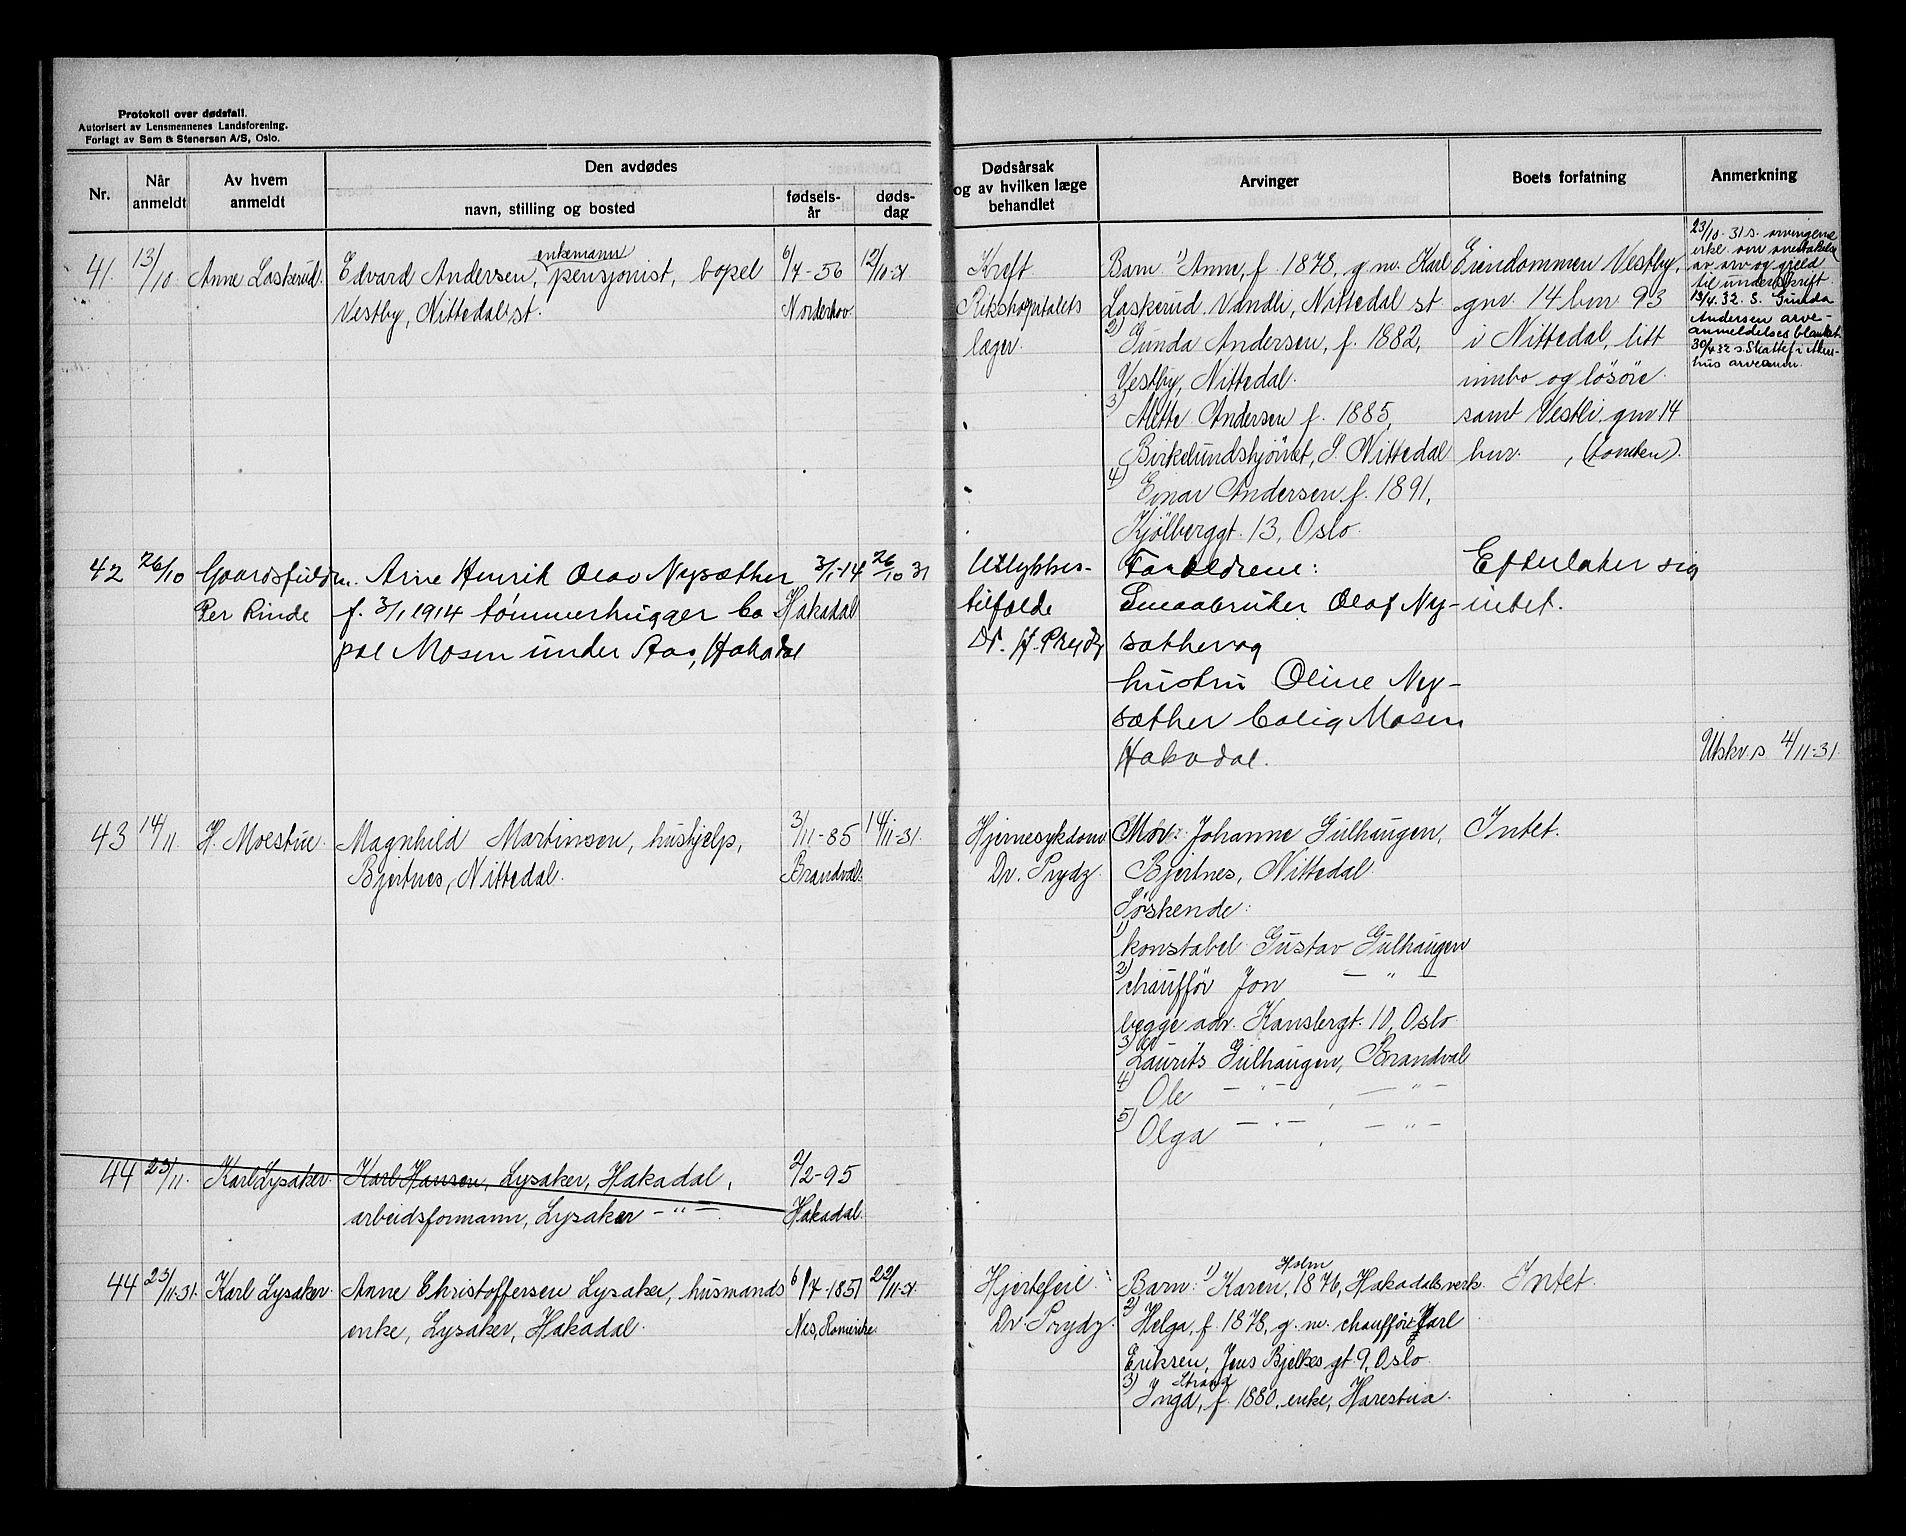 Protokoll over dødsfall.
Autorisert av Lensmennenes Landsforening.
Forlagt av Sem & Stenersen A/S, Oslo.
Nr.
Når anmeldt
Av hvem anmeldt
Den avdødes
navn, stilling og bosted
fødsels-år
døds-dag
Dødsårsak
og av hvilken læge
behandlet
Arvinger
Boets forfatning
Anmerkning
41. 13/10 Anne Laskerud. Edvard Andersen, enkemann pensjonist, bopel 6/4-56 12/10-31
Vestby, Nittedal st. Norderhov
Kreft
Rikshospitalets
læger.
Barn: 1) Anne, f. 1878, g.m. Karl
Laskerud. Vandli, Nittedal st
2) Gunda Andersen, f. 1882,
Vestby, Nittedal.
3) Mette Andersen f. 1885,
Birkelundshjörnet, S. Nittedal
4) Einar Andersen f. 1891,
Kjölberggt. 13, Oslo.
Eiendommen Vestby,
gnr. 14 bnr 93
i Nittedal, litt
innbo og lösöre
samt Vestli gnr 14
bnr. , (tomten).
23/10. 31 s. arvingene
erkl. om overtakelse
av arv og gjeld
til underskrift
13/4. 32. S. Gunda
Andersen arve-
anmeldelses blankett.
30/4 32 s. Skattef. i Akers-
hus arveanm.
42 26/10 Gaardsfuldm. Arne Henrik Olav Nysæther 3/1-14 26/10 31
Per Rinde f. 3/1 1914 tømmerhugger bo Hakadal
pæl Mosen under Aas, Hakadal
Ulykkes-
tilfælde
Dr. H. Prydz
Forældrene:
Smaabruker Olaf Ny-
sæther og
hustru Oline Ny-
sæther bolig Mosen
Hakadal.
Efterlater sig
intet.
Utskr. s. 4/11-31.
43 14/11 H. Moestue. Magnhild Martinsen, hushjelp, 3/11-85 14/11-31.
Bjertnes, Nittedal. Brandval.
Hjernesykdom
Dr. Prydz.
Mor: Johanne Gulhaugen,
Bjertnes, Nittedal.
Søskende:
1) konstabel Gustav Gulhaugen
2) chauffør Jon — " —
begge adr. Kanslergt. 10, Oslo
3) Laurits Gulhaugen, Brandval
4) Ole — " — , — " —
5) Olga — " — , — " —
Intet.
44 23/11. Karl Lysaker. Karl Hansen, Lysaker, Hakadal, 2/2-95
arbeidsformann, Lysaker — " —. Hakadal.
44 23/11-31. Karl Lysaker Anne Christoffersen Lysaker, husmands 6/7-1851 22/11-31
enke, Lysaker, Hakadal. Nes, Romerike.
Hjertefeil
Dr. Prydz.
Barn: 1) Karen, Holm 1876, Hakadalsverk.
2) Helga, f. 1878, g.m. chauffør Karl
Eriksen, Jens Bjelkes gt. 9, Oslo.
3) Inga, Strand f. 1880, enke, Harestua.
Intet.